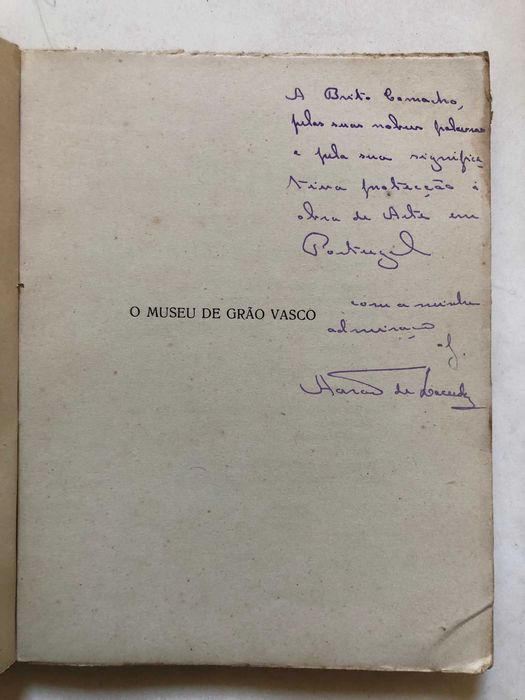 A Brito Camacho,
pelas suas nobres palavras
e pela sua significa-
tiva protecção á
obra de Arte em
Portugal
com a minha
admiração
O MUSEU DE GRÃO VASCO
Aarão de Lacerda